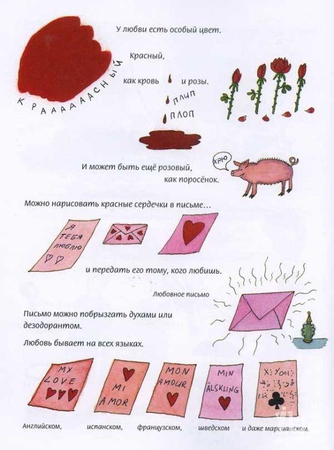 У любви есть особый цвет.
Красный,
КРАААААСНЫЙ
как кровь и розы.
ПЛИП
ПЛОП
И может быть ещё розовый,
как поросёнок.
ХРЮ
Можно нарисовать красные сердечки в письме...
Я
ТЕБЯ
ЛЮБЛЮ
и передать его тому, кого любишь.
Любовное письмо
Письмо можно побрызгать духами или
дезодорантом.
Любовь бывает на всех языках.
MY
LOVE
MI
AMOR
MON
AMOUR
MIN
ÄLSKLING
Английском, испанском, французском, шведском и даже марсианском.